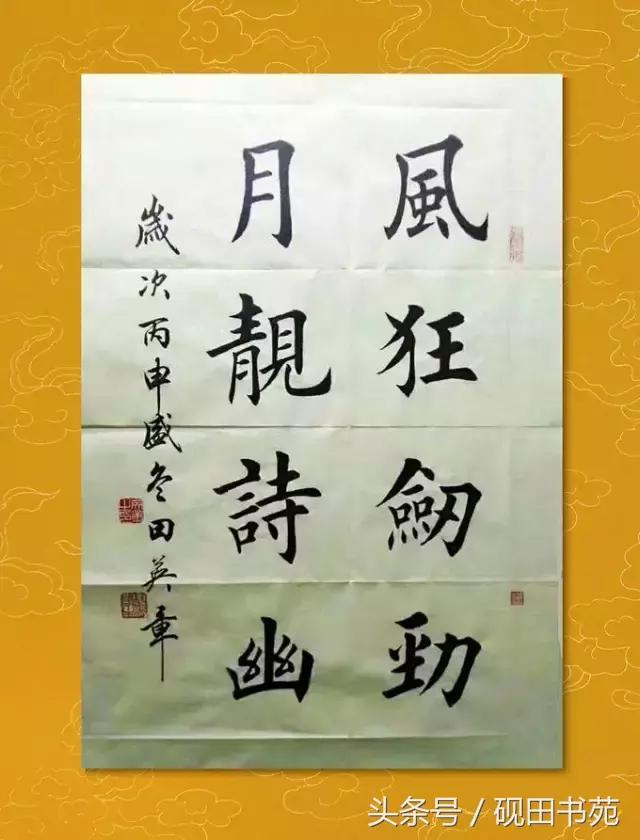 風狂劒勁
月靚詩幽
歲次丙申盛冬田英章
头条号 / 砚田书苑